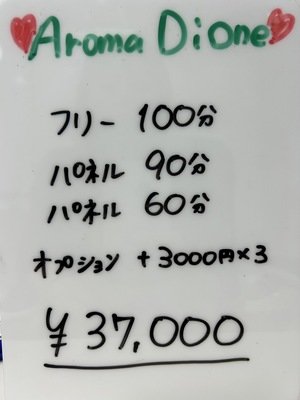 Aroma Dione
フリー 100分
パネル 90分
パネル 60分
オプション +3000円×3
¥37,000